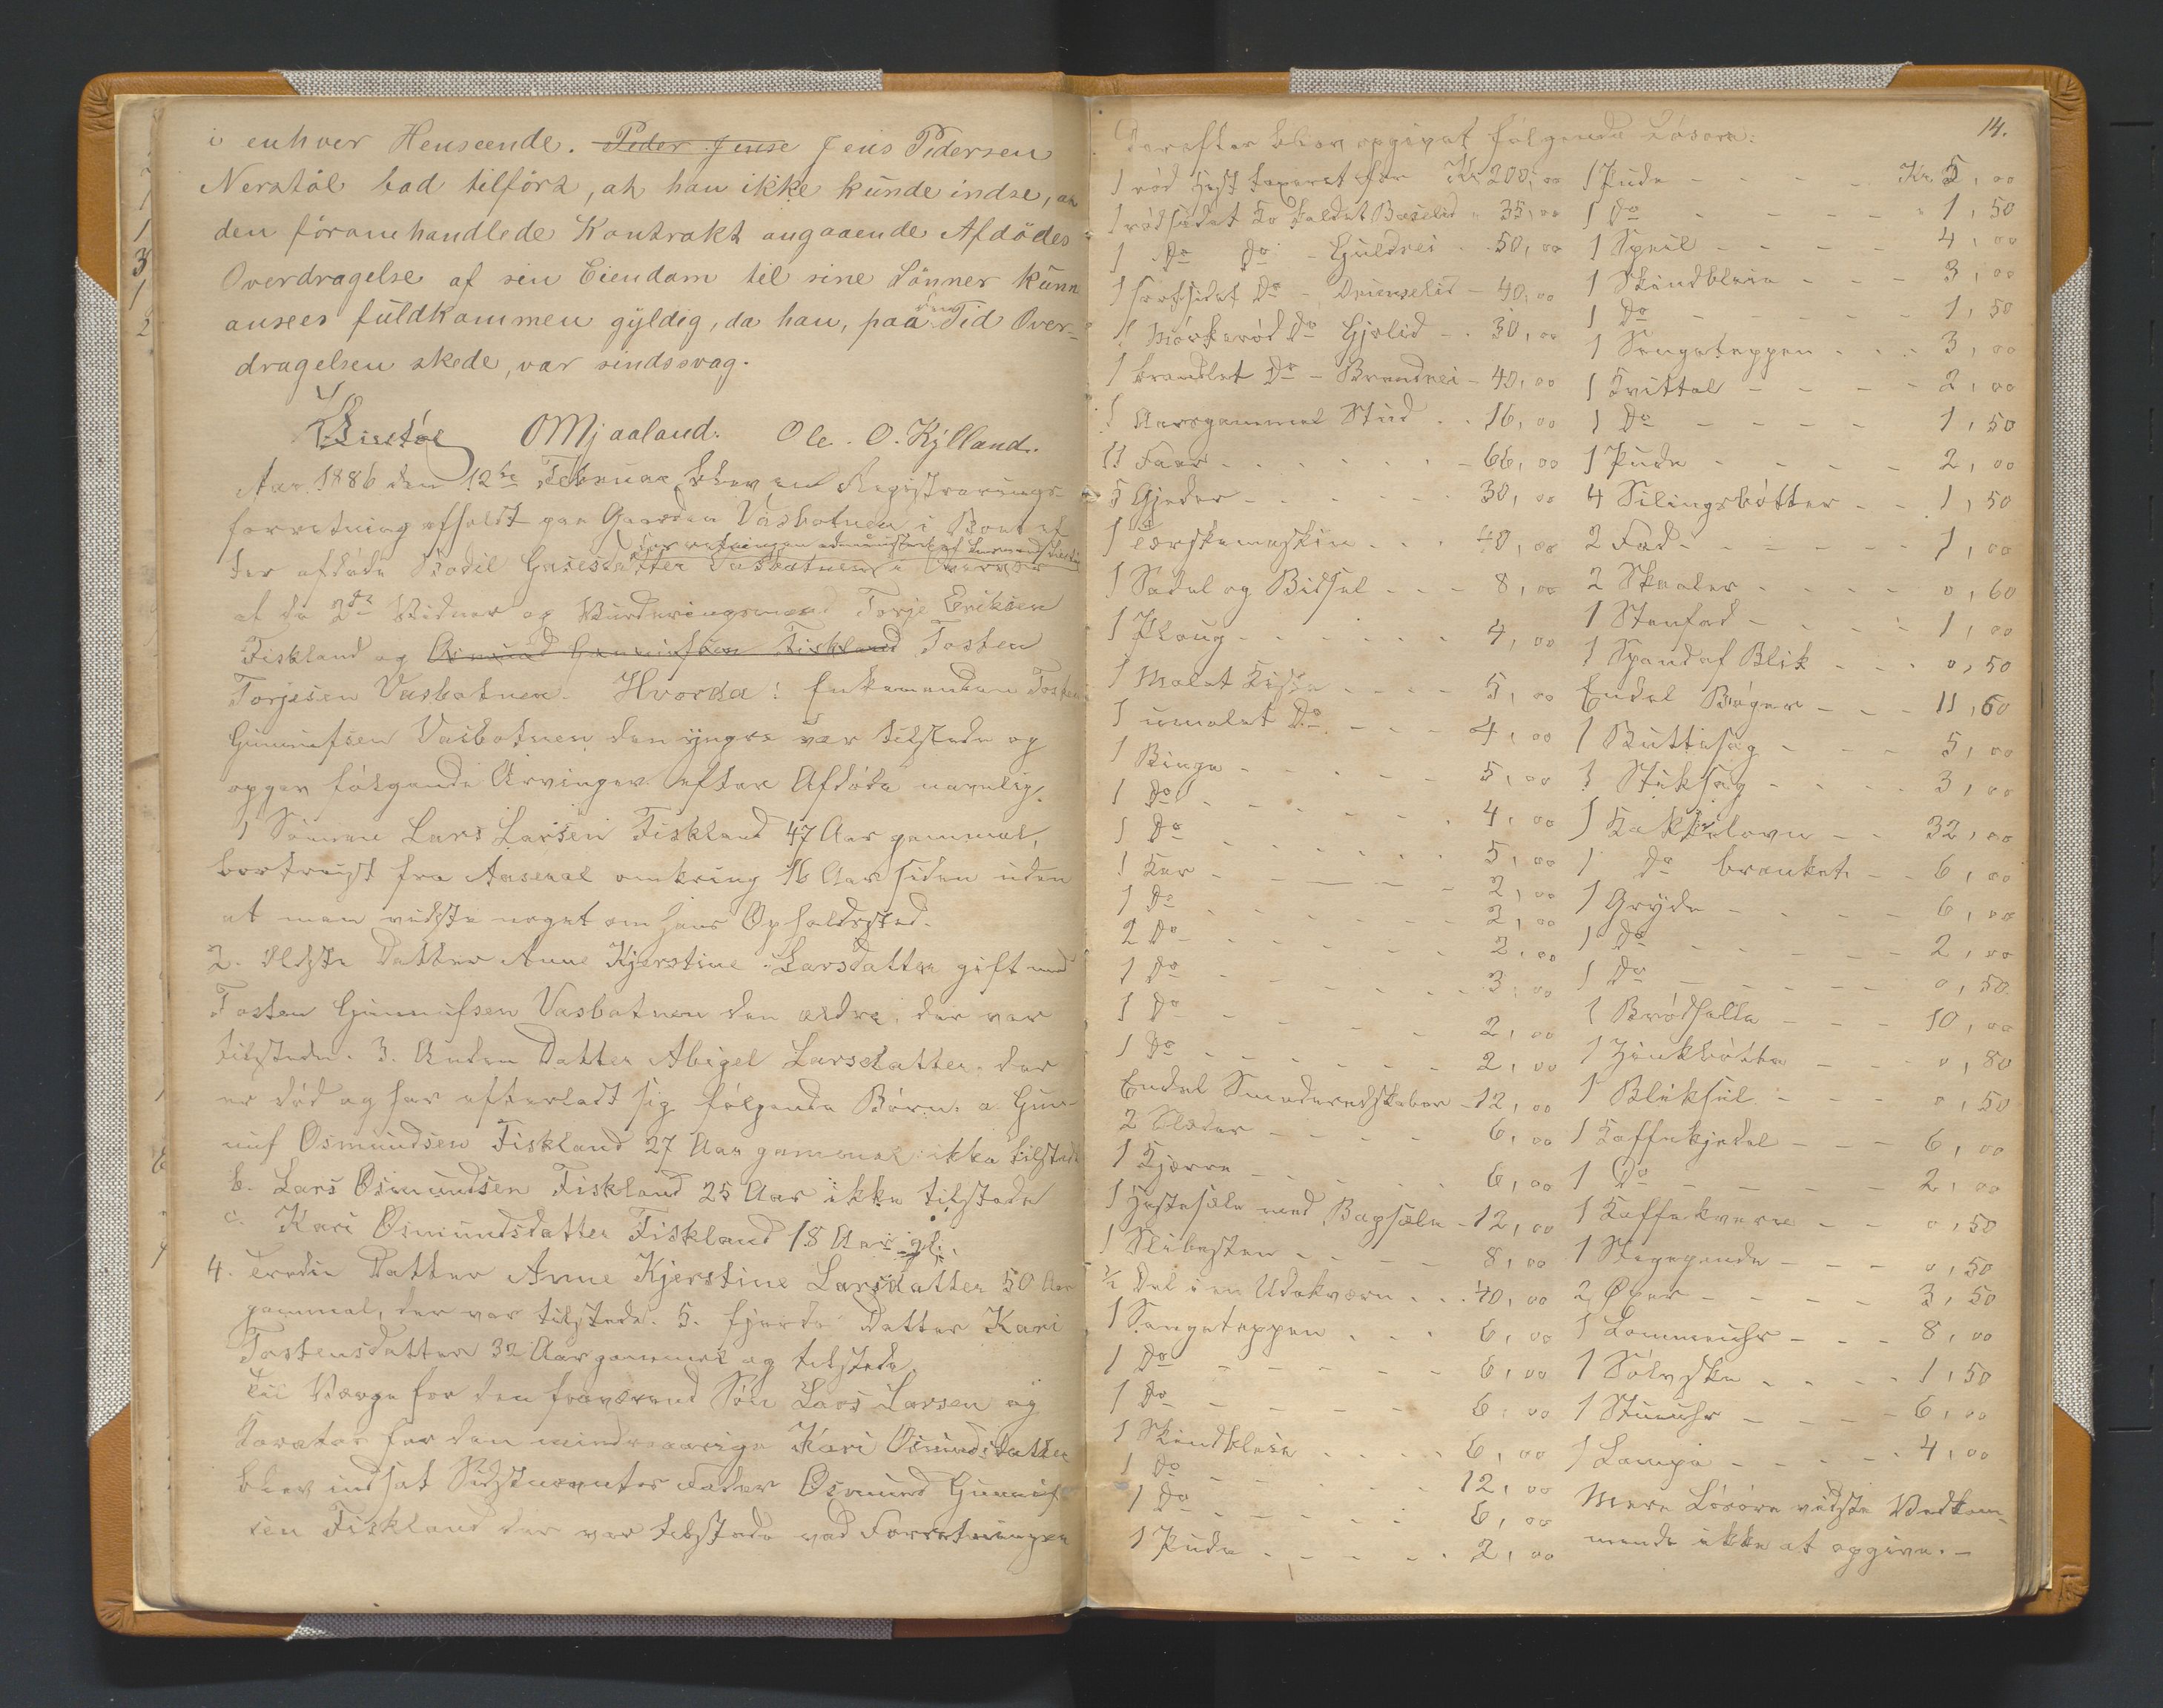 i enhver Henseende. Peder Jense Jens Pedersen
Nerstöl bad tilfört, at han ikke kunde indse, at
den föromhandlede Kontrakt angaaende Afdödes
Overdragelse af sin Eiendom til sine Sönner kunn
ansees fuldkommen gyldig, da han, paa den Tid Over-
dragelsen skede, var sindssvag.
OMjaaland. Ole. O. Kylland.
Aar 1886 den 12te Februar blev en Registrerings-
forretning afholdt paa Gaarden Vasbotnen i Boet ef-
forretningen administreret af Lensmand
ter afdöde Bodil Vasbotnen
af de 2de Vidner og Vurderingsmænd Torje Eriksen
Fiskland og Osmund Gunnufsen Fiskland Tosten
Torjesen Vasbotnen. Hvorda: Enkemanden Tosten
Gunnufsen Vasbotnen den yngre var tilstede og
opgav fölgende Arvinger efter Afdöde navnlig:
1 Sönnen Lars Larsen Fiskland 47 Aar gammel,
bortreist fra Aaseral omkring 16 Aar siden uden
at man vidste noget om hans Opholdssted.
2. Ældste Datter Anne Kjerstine Larsdatter gift med
Tosten Gunnufsen Vasbotnen den ældre, der var
tilstede. 3. Anden Datter Abigel Larsdatter, der
er död og har efterladt sig fölgende Börn: a. Gun-
nuf Osmundsen Fiskland 27 Aar gammel ikke tilstede
b. Lars Osmundsen Fiskland 25 Aar ikke tilstede
c. Kari Osmundsdatter Fiskland 18 Aar gl.
4. Tredie Datter Anne Kjerstine Larsdatter 50 Aar
gammel, der var tilstede. 5. fjerde Datter Kari
Tostensdatter 32 Aar gammel og tilstede.
Til Værge for den fraværend Sön Lars Larsen og
Kurator for den mindreaarige Kari Osmundsdatter
blev indsat Sidstnævntes Fader Osmund Gunnuf-
sen Fiskland der var tilstede ved Forretningen
14.
Derefter blev opgivet fölgende Lösöre:
1 röd Hest taxeret for Kr. 200,00
1 rödsidet Ko kaldet Baselid - 35,00
1 Do Do - Guldrei - 50,00
1 sortsidet Do - - 40,00
1 Mörkeröd Do Gjelid - 30,00
1 brandet Do - Brandrei - 40,00
1 Aarsgammel Stud - 16,00
11 Faar - 66,00
5 Gjeder - 30,00
1 Tærskemaskin - 40,00
1 Sadel og Bidsel - 8,00
1 Ploug - 4,00
1 Malet Kiste - 5,00
1 umalet Do - 4,00
1 Binge - 5,00
1 Do - 4,00
1 Do - 5,00
1 Kar - 2,00
1 Do - 2,00
2 Do - 2,00
1 Do - 3,00
1 Do - 2,00
1 Do - 2,00
Endel Smederedskaber - 12,00
2 Slæder - 6,00
1 Kjærre - 6,00
1 Hestesæle med Bagsæle - 12,00
1 Slibesten - 8,00
1/2 Del i en Udekværn - 40,00
1 Sengeteppen - 6,00
1 Do - 6,00
1 Do - 6,00
1 Skindfeld - 6,00
1 Do - 12,00
1 Do - 6,00
1 Pude - 2,00
1 Pude - Kr. 5,00
1 Do - 1,50
1 Speil - 4,00
1 - 3,00
1 Do - 1,50
1 Sengeteppen - 3,00
1 Kvittel - 2,00
1 Do - 1,50
1 Pude - 2,00
4 Silingsbötter - 1,50
2 Fad - 1,00
2 Skaaler - 0,60
1 Stenfad - 1,00
1 Spand af Blik - 0,50
Endel Böger - 11,60
1 - 5,00
1 Stiksag - 3,00
1 Kakkelovn - 32,00
1 Do brænket - 6,00
1 Gryde - 6,00
1 Do - 2,00
1 Do - 0,50
1 Brödhella - 10,00
1 Zinkbötte - 0,80
1 Bliksil - 0,50
1 Kaffekjedel - 6,00
1 Do - 2,00
1 Kaffekværn - 0,50
1 Stegepande - 0,50
2 Öxer - 3,50
1 Lommeuhr - 8,00
1 Sölvske - 1,50
1 Stueuhr - 6,00
1 Lampe - 4,00
Mere Lösöre vidste Vedkom-
mende ikke at opgive. -